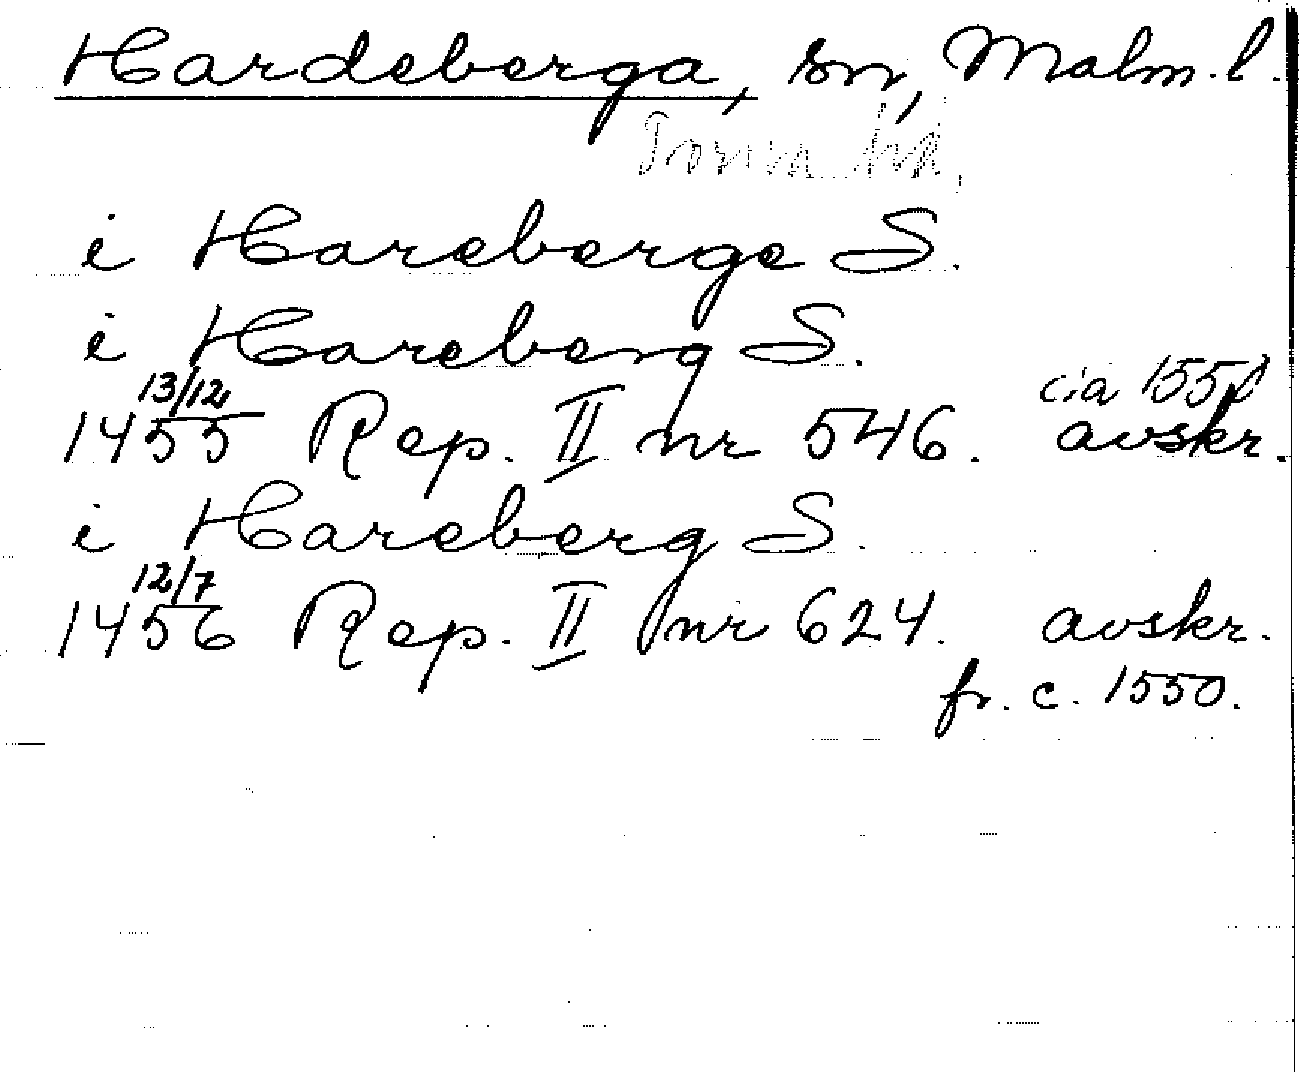 Hardeberga, sn, Malm. l.
Torna hd,
i Hareberge S.
i Hareberg S.
13/12 cia 1550
1455 Rep. II nr 546. avskr.
i Hareberg S.
12/7
1456 Rep. II nr 624. avskr.
fr. c. 1550.